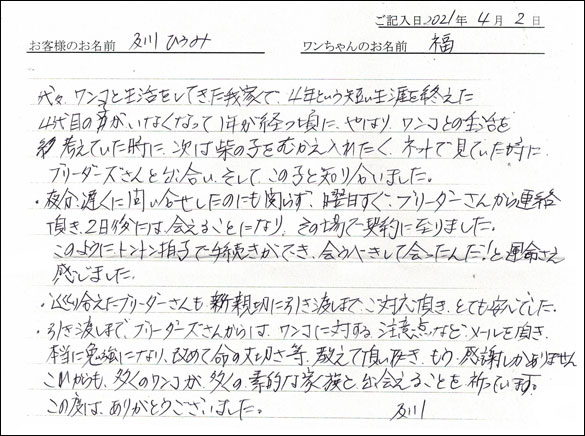 ご記入日 2021年 4月 2日
お客様のお名前 及川 ひろみ ワンちゃんのお名前 福
代々、ワンコと生活をしてきた我家で、4年という短い生涯を終えた
4代目の子がいなくなって1年が経つ頃に、やはり、ワンコとの生活を
考えていた時に、次は柴の子をむかえ入れたく、ネットで見ていた時に
ブリーダーズさんと出合い、そして、この子と知り合いました。
・夜分遅くに問い合せしたのにも関らず、翌日すぐ、ブリーダーさんから連絡
頂き、2日後には、会えることになり、その場で契約に至りました。
このようにトントン拍子で手続きができ、会うべきして会ったんだ!と運命さえ
感じました。
・巡り合えたブリーダーさんも親切に引き渡しまで、ご対応頂き、とても安心でした。
・引き渡しまで、ブリーダーズさんからは、ワンコに対する注意点など、メールを頂き、
本当に勉強になり、改めて命の大切さ等、教えて頂いた、もう、感謝しかありません
これからも、多くのワンコが、多くの素的な家族と出会えることを祈っています。
この度は、ありがとうございました。 及川